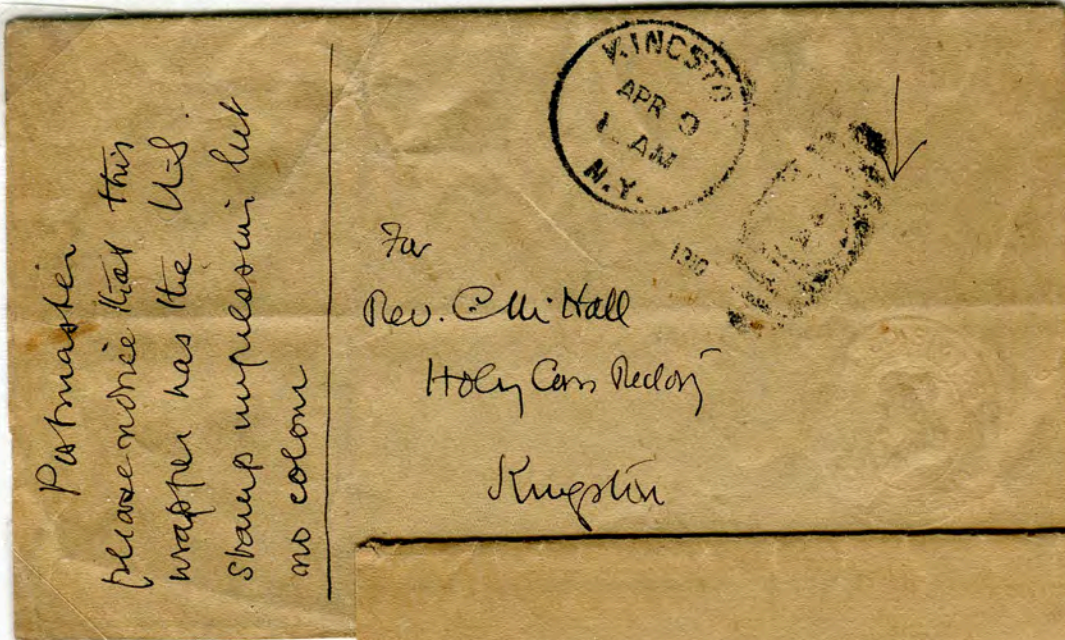 Postmaster
please notice that this
wrapper has the U-S
stamp impression but
no colour
KINGSTO
APR 9
AM
N.Y.
1910
For
Rev. C M Hall
Holy Cross Rectory
Kingston